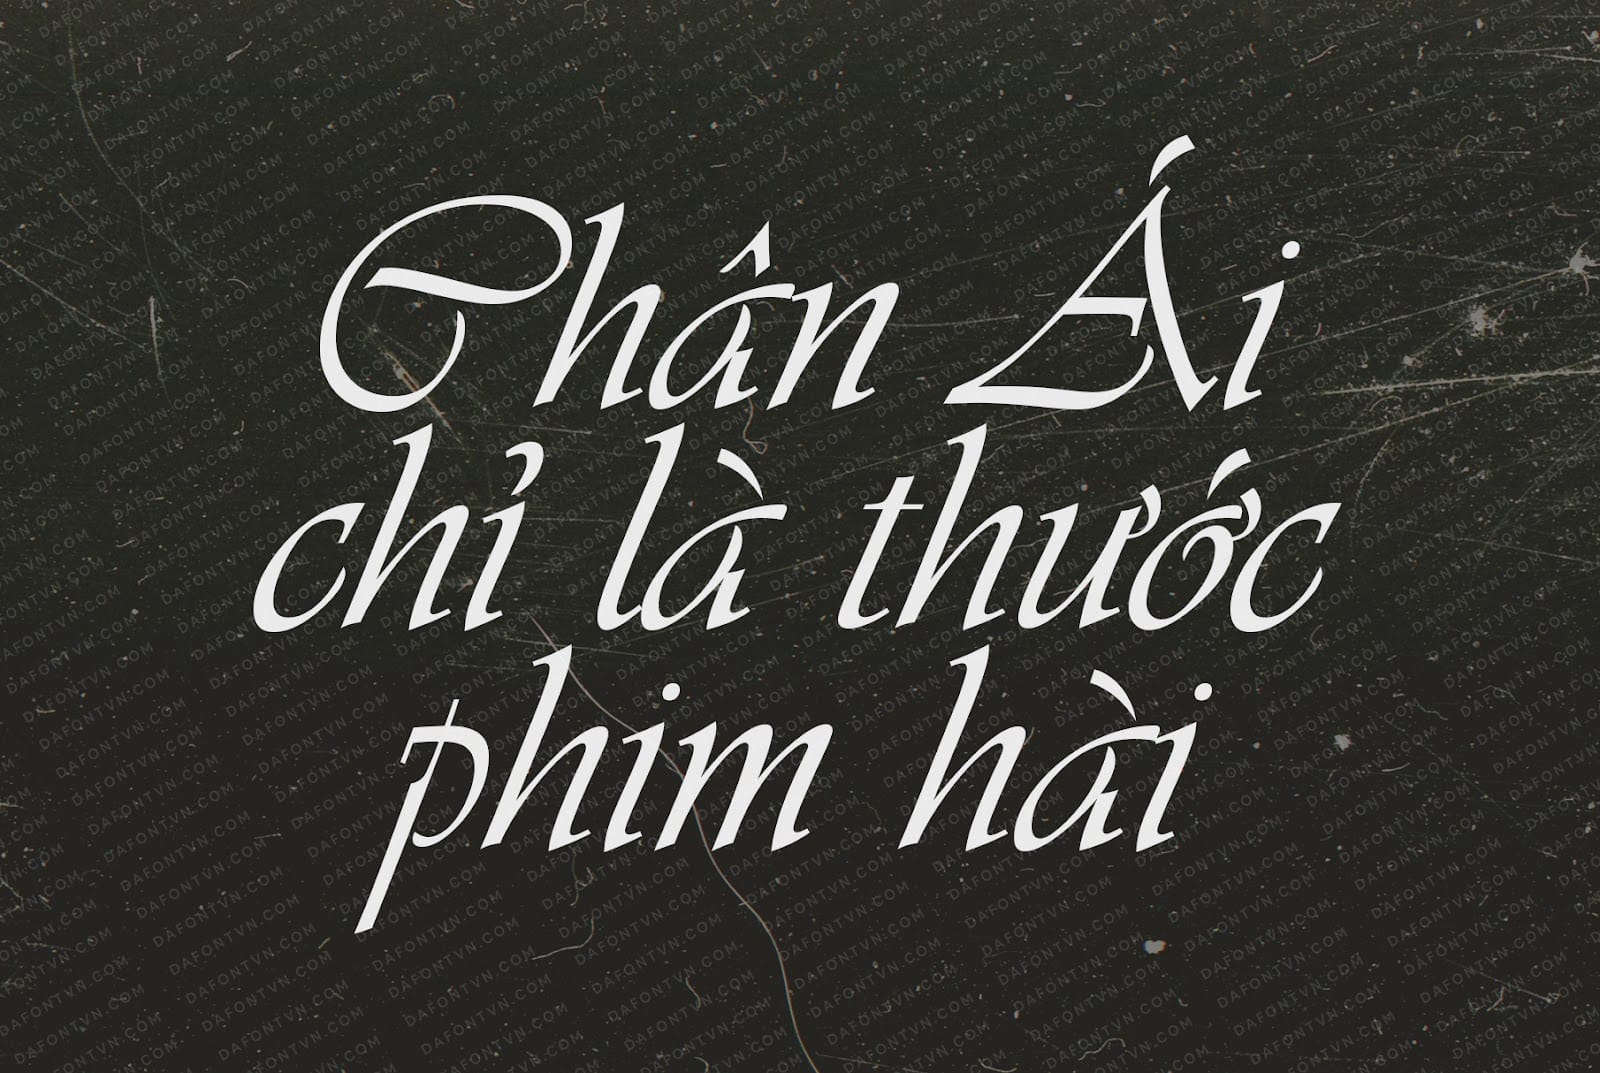 Chân Ái
chỉ là thước
phim hài
DAFONTVN.COM